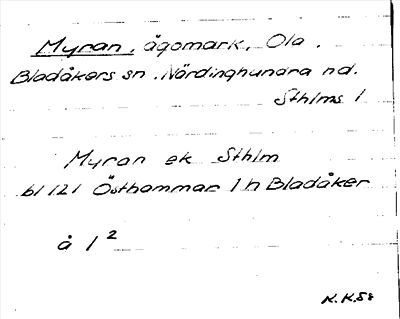 Myran, ågomark, Ola.
Bladåkers sn. Närdinghundra hd.
Sthlms l
Myran ek Sthlm
bl 121 Östhammar 1 h Bladåker
å 1²
K.K.58